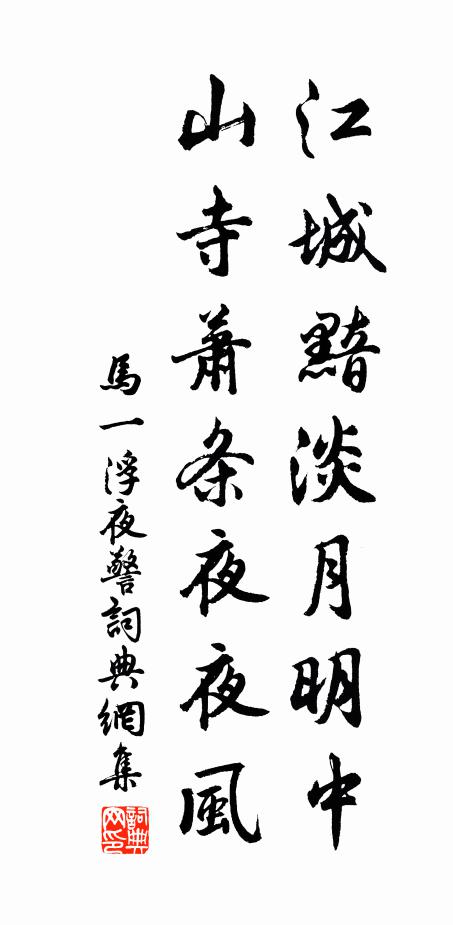 江城黯淡月明中
山寺蕭条夜夜風
馬一浮夜警詞典網集
詞典网印